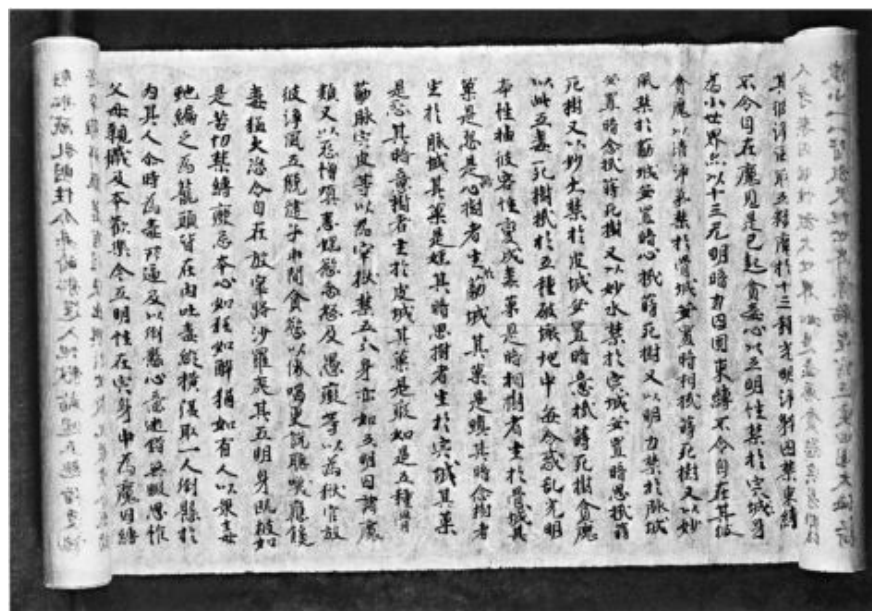 其彼淨活五類魔於十三種光明淨體囚禁束縛
不令自在魔見是已起貪毒心以五明性禁於宍身
為小世界亦以十三无明暗力囚固束縛不令自在其彼
貪魔以清淨氣禁於骨城安置暗相栽蒔死樹又以妙
風禁於筋城安置暗心栽蒔死樹又以明力禁於脉城
安置暗念栽蒔死樹又以妙水禁於宍城安置暗思栽蒔
死樹又以妙火禁於皮城安置暗意栽蒔死樹貪魔
以此五毒死樹栽於五種破壞地中每令惑乱光明
本性抽彼客性變成毒菓是暗相樹者生於骨城其
菓是怨是暗心樹者生於筋城其菓是嗔其暗念樹者
生於脉城其菓是婬其暗思樹者生於宍城其菓
是忿其暗意樹者生於皮城其菓是癡如是五種骨
筋脉宍皮等以為牢獄禁五分身亦如五明囚諸魔
類又以怨憎嗔恚婬慾忿怒及愚癡等以為獄官放
彼淨風五驍健子中間貪慾以像唱更說聽喚應饞
毒猛火恣令自在放窣路沙羅夷其五明身既被如
是苦切禁縛廢忘本心如狂如醉猶如有人以衆毒
虵編之為籠頭皆在內吐毒縱橫復取一人倒懸於
內其人尒時為毒所逼及以倒懸心意迷錯無暇思惟
父母親戚及本歡樂今五明性在宍身中為魔囚縛